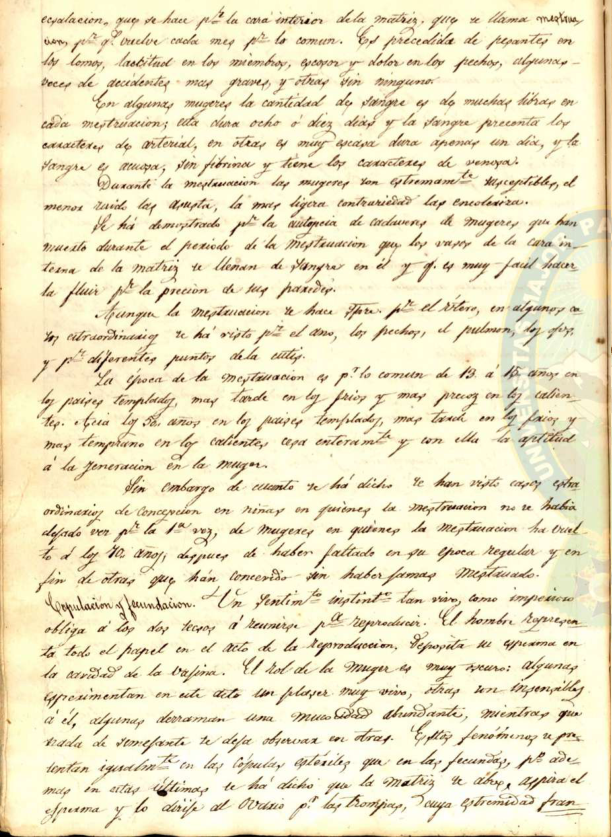 ecsalacion, que se hace pr. la cará interior de la matriz, que se llama mestrua
cion, pr. qe. vuelve cada mes pr. lo comun. Es precedida de pesantes en
los lomos, lacsitud en los miembros, escosor y dolor en los pechos, algunas
veces de accidentes mas graves, y otras sin ninguno.
En algunas mugeres la cantidad de sangre es de muchas libras en
cada mestruacion; ella dura ocho ó diez dias y la sangre precenta los
caracteres de arterial, en otras es muy escasa dura apenas un dia, y la
sangre es acuosa, sin fibrina y tiene los caracteres de venosa.
Durante la mestruacion las mugeres son estremamte. susceptibles, el
menor ruido las asusta, la mas ligera contrariedad las encoleriza.
Se há demostrado pr. la autopcia de cadaveres de mugeres que han
muerto durante el periodo de la mestruacion que los vasos de la cara in
terna de la matriz se llenan de sangre en él y q. es muy facil hacer
la fluir pr. la precion de sus paredes.
Aunque la mestruacion se hace spre. pr. el útero, en algunos ca
sos estraordinarios se há visto pr. el ano, los pechos, el pulmon, los ojos,
y pr. diferentes puntos de la cutis.
La época de la mestruacion es pr. lo comun de 13 á 15 años en
los paises templados, mas tarde en los frios y mas precoz en los calien
tes. Acia los 50 años en los paises templados, mas tarde en los frios y
mas temprano en los calientes cesa enteramte. y con ella la aptitud
á la generacion en la muger.
Sin embargo de cuanto se há dicho se han visto casos estra
ordinarios de concepcion en niñas en quienes la mestruacion no se habia
dejado ver pr. la 1ª vez, de mugeres en quienes la mestruacion ha vuel
to á los 70 años, despues de haber faltado en su epoca regular y en
fin de otras que hán concevido sin haber jamas mestruado.
Copulacion y fecundacion. Un sentimto. instinto. tan vivo, como imperioso
obliga á los dos secsos á reunirse pa. reproducir. El hombre represen
ta todo el papel en el acto de la reproducion, deposita su esperma en
la cavidad de la vajina. El rol de la muger es muy oscuro: algunas
esperimentan en este acto un plaser muy vivo, otras son insensibles
á él, algunas derraman una mucosidad abundante, mientras que
nada de semejante se deja observar en otras. Estos fenómenos se pre
sentan igualmte. en las cópulas estériles que en las fecundas, pr. ade
mas en estas últimas se há dicho que la matriz se abre, aspira el
esperma y lo dirije al ovario pr. las trompas, cuya estremidad fran